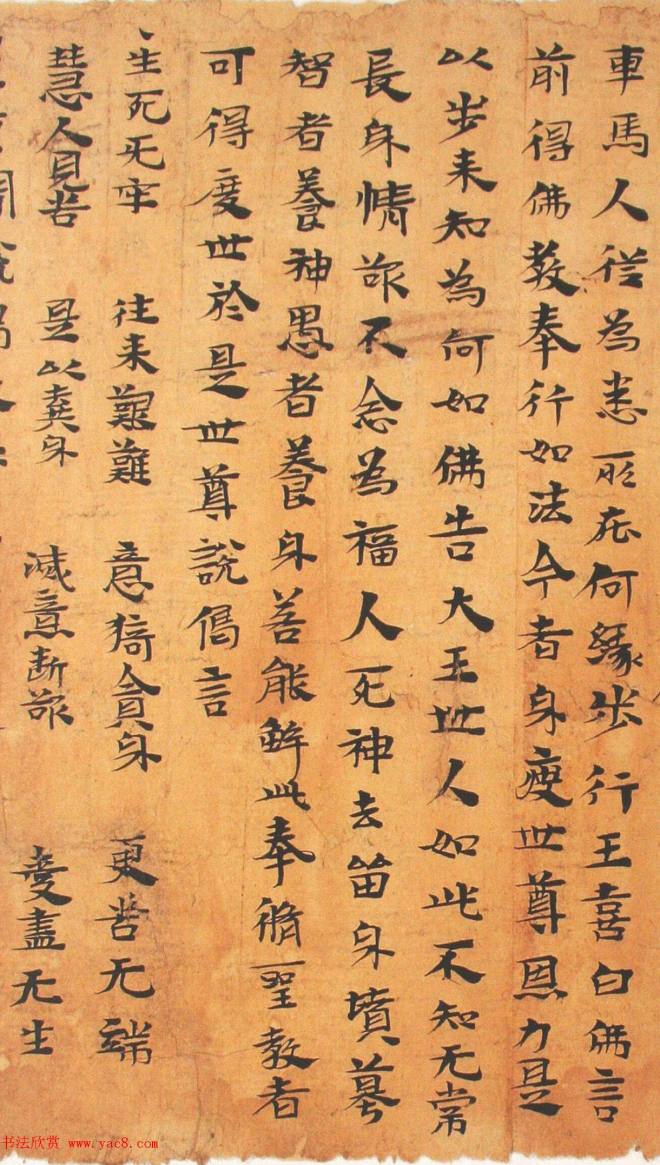 車馬人從為悉所在何緣步行王喜白佛言
前得佛教奉行如法今者身瘦世尊恩力是
以步来知為何如佛告大王世人如此不知无常
長身情欲不念為福人死神去留身墳墓
智者養神愚者養身善能解此奉脩聖教者
可得度世於是世尊說偈言
生死无牢 往来艱難 意猗貪身 更苦无端
慧人見苦 是以棄身 滅意断欲 愛盡无生
书法欣赏 www.yac8.com